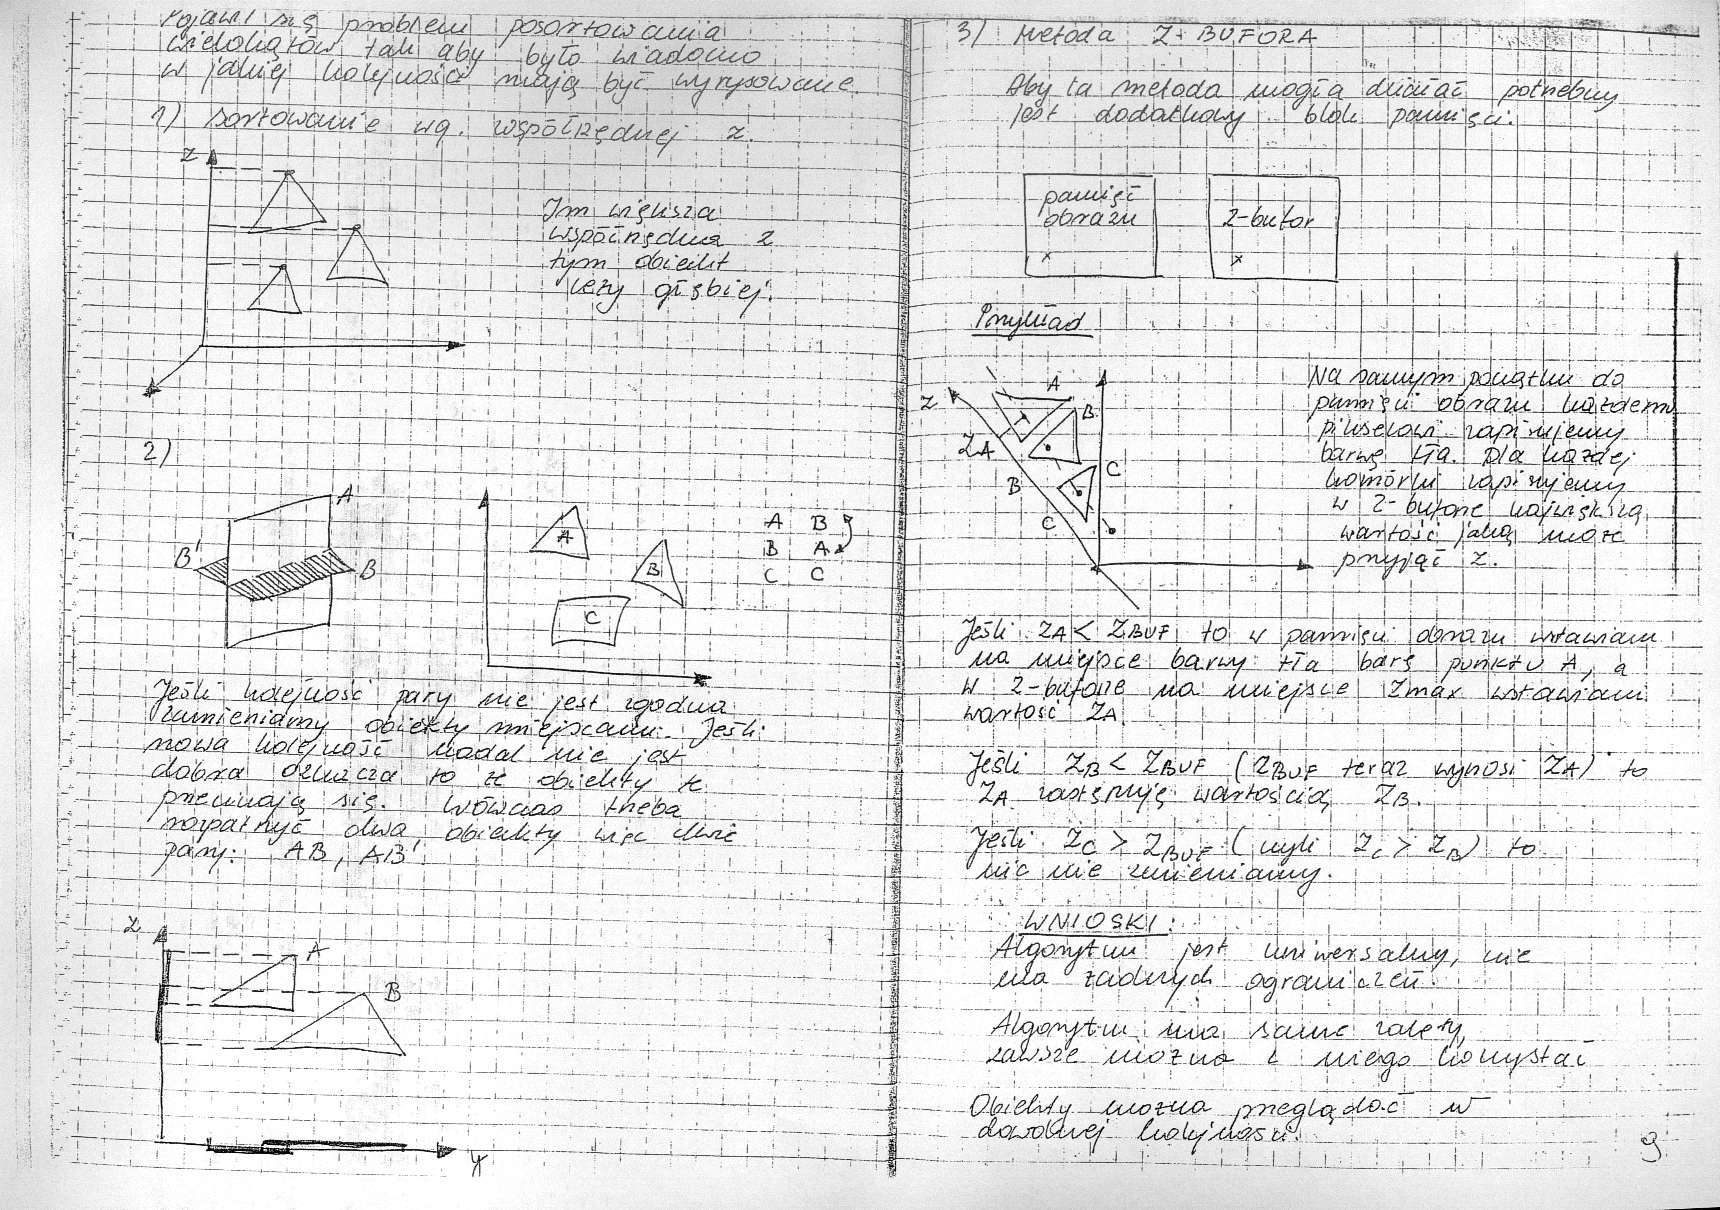 Pojawi się problem posortowania
wielokątów tak aby było wiadomo
w jakiej kolejności mają być wyrysowane.
1) sortowanie wg. współrzędnej z.
z
Im większa
współrzędna z
tym obiekt
leży głębiej.
2)
A
B'
B
A
B
C
A B
B A
C C
Jeśli kolejność pary nie jest zgodna
zamieniamy obiekty miejscami. Jeśli
nowa kolejność nadal nie jest
dobra oznacza to że obiekty te
przecinają się. Wówczas trzeba
rozpatrzyć dwa obiekty więc dwie
pary: AB, AB'.
z
A
B
y
3) Metoda Z-BUFORA
Aby ta metoda mogła działać potrzebny
jest dodatkowy blok pamięci.
pamięć
obrazu
x
z-bufor
x
Przykład
z
A
B
ZA
C
B
C
Na samym początku do
pamięci obrazu każdemu
pikselowi zapisujemy
barwę tła. Dla każdej
komórki zapisujemy
w z-buforze największą
wartość jaką może
przyjąć z.
Jeśli ZA < ZBUF to w pamięci obrazu wstawiam
na miejsce barwy tła barę punktu A, a
w z-buforze na miejsce Zmax wstawiam
wartość ZA.
Jeśli ZB < ZBUF (ZBUF teraz wynosi ZA) to
ZA zastępuję wartością ZB.
Jeśli ZC > ZBUF (czyli ZC > ZB) to
nic nie zmieniamy.
WNIOSKI:
Algorytm jest uniwersalny, nie
ma żadnych ograniczeń.
Algorytm ma same zalety,
zawsze można z niego korzystać
Obiekty można przeglądać w
dowolnej kolejności.
9